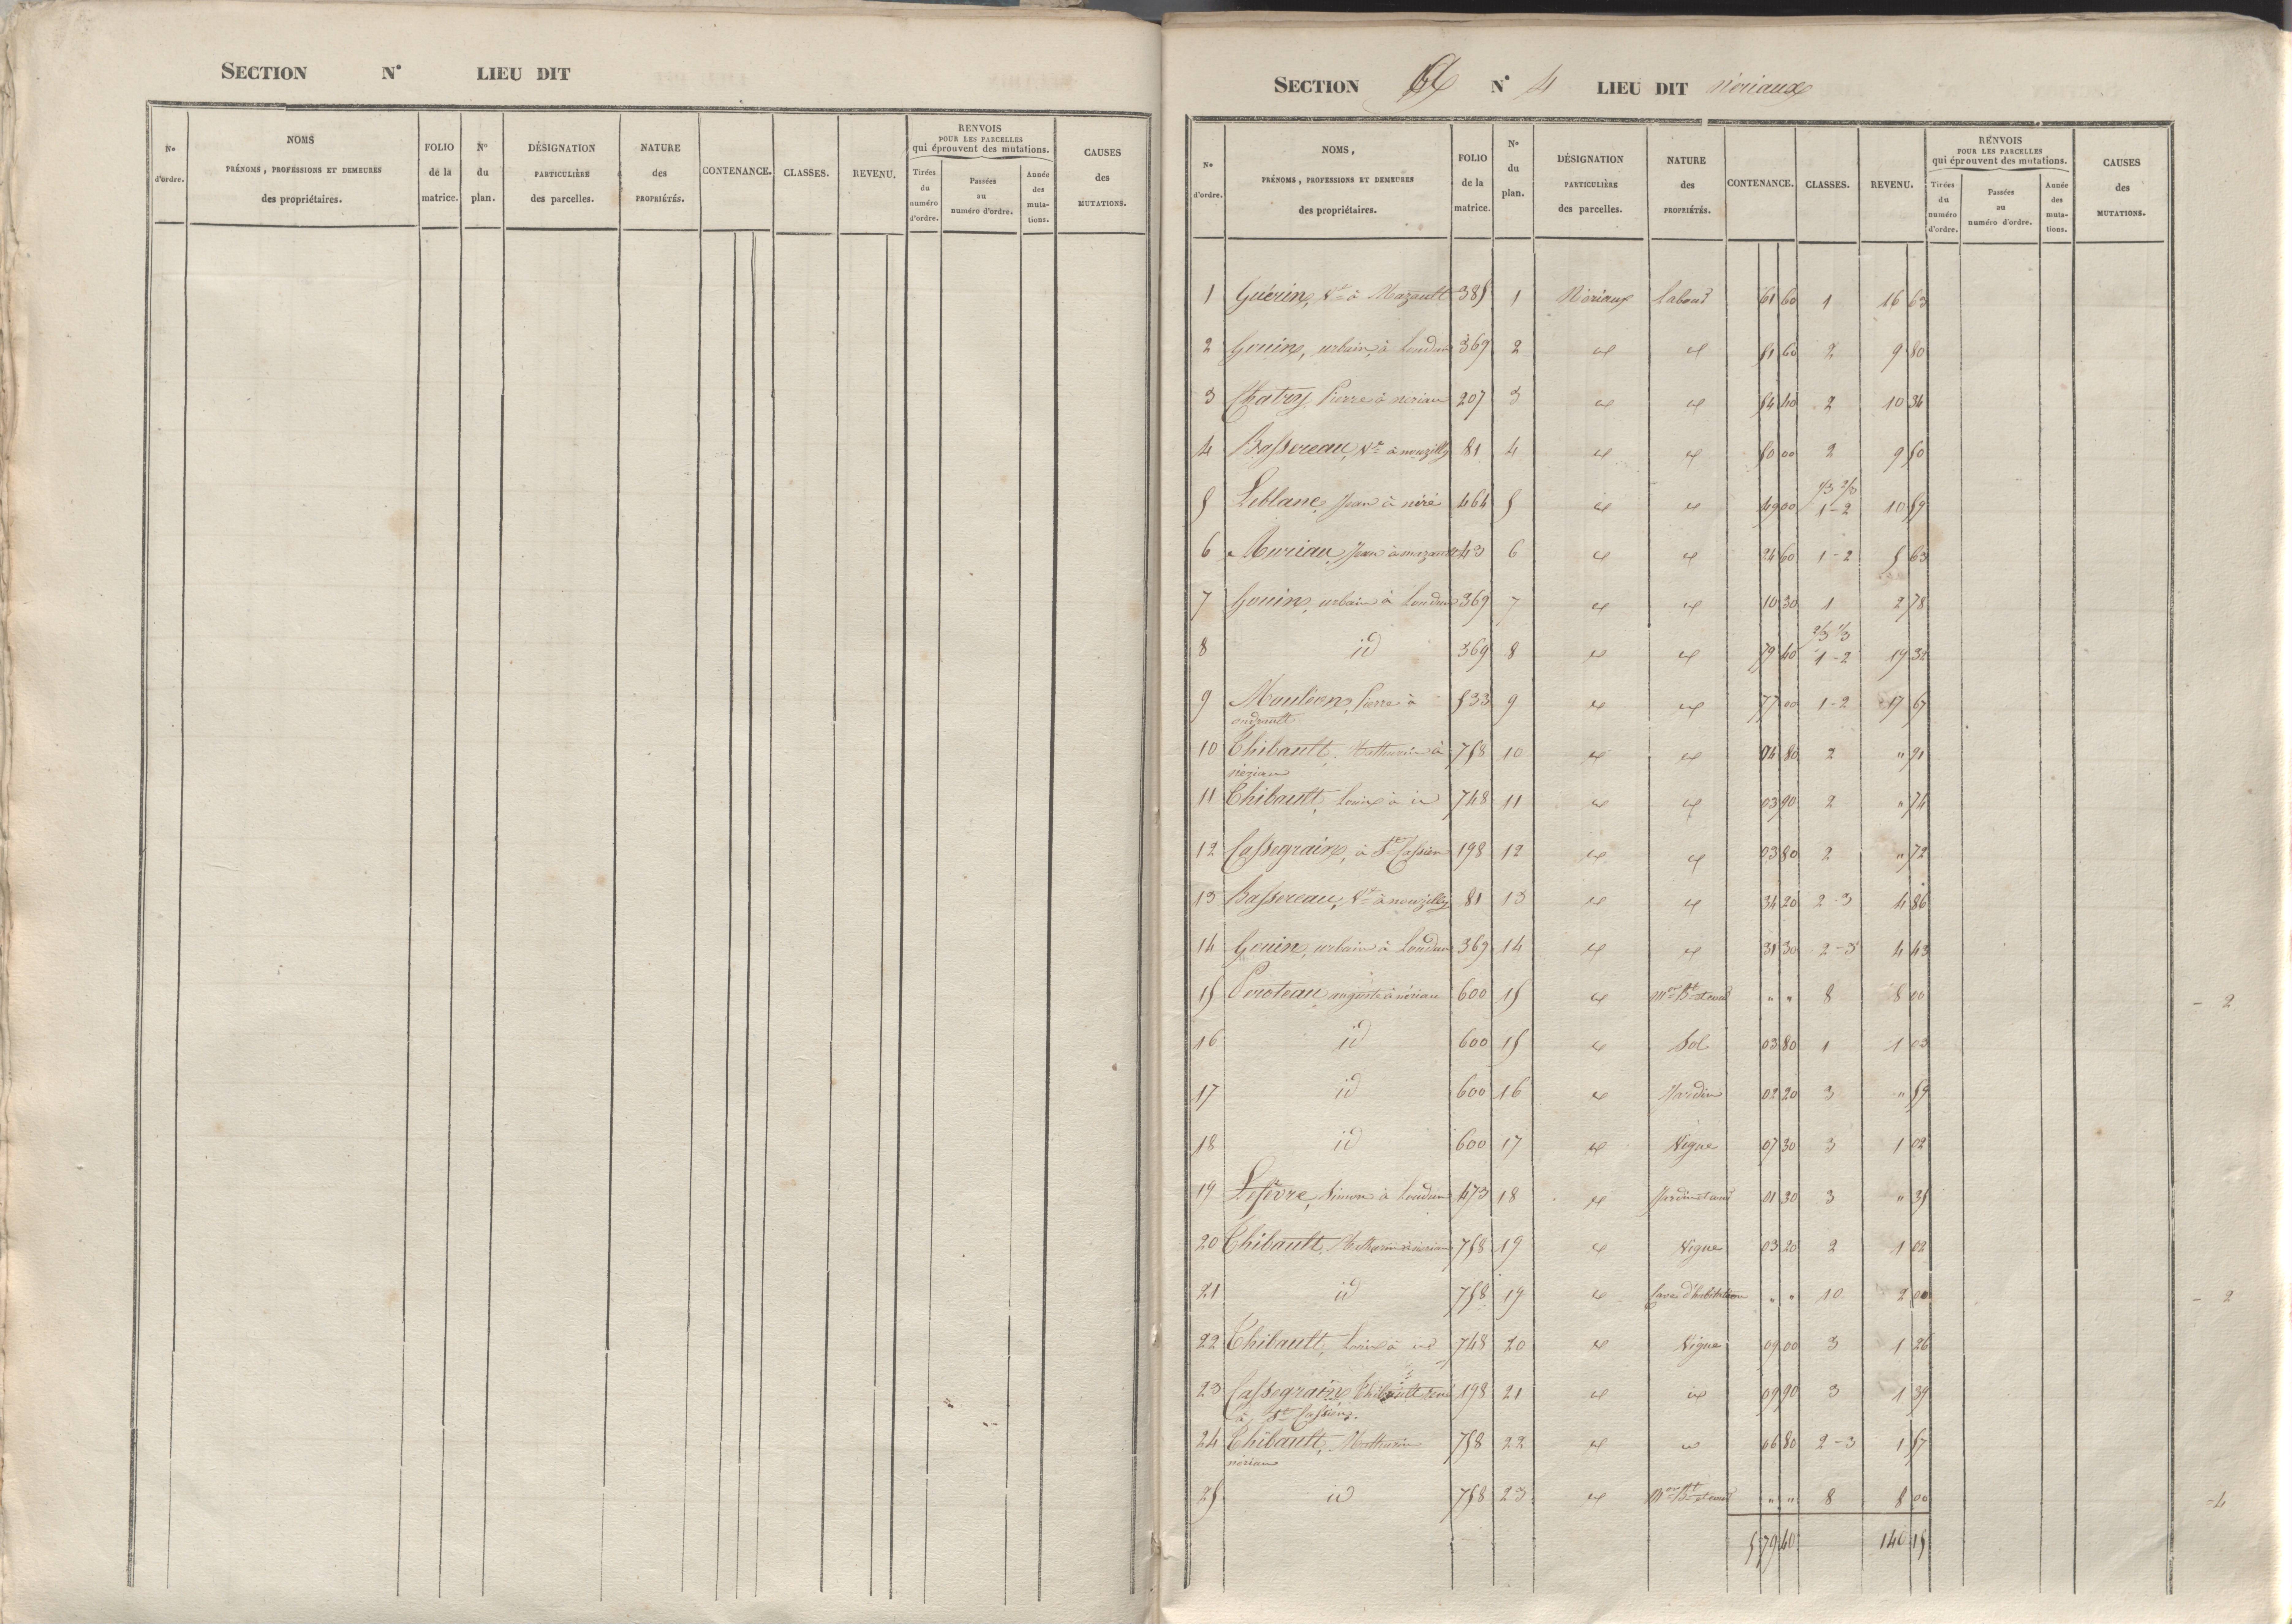 SECTION N° LIEU DIT
N° d'ordre. NOMS PRÉNOMS, PROFESSIONS ET DEMEURES des propriétaires. FOLIO de la matrice. N° du plan. DÉSIGNATION PARTICULIÈRE des parcelles. NATURE des PROPRIÉTÉS. CONTENANCE. CLASSES. REVENU. RENVOIS POUR LES PARCELLES qui éprouvent des mutations. Tirées du numéro d'ordre. Passées au numéro d'ordre. Année des muta-tions. CAUSES des MUTATIONS.
SECTION N° 4 LIEU DIT Nériaux
N° d'ordre. NOMS, PRÉNOMS, PROFESSIONS ET DEMEURES des propriétaires. FOLIO de la matrice. N° du plan. DÉSIGNATION PARTICULIÈRE des parcelles. NATURE des PROPRIÉTÉS. CONTENANCE. CLASSES. REVENU. RENVOIS POUR LES PARCELLES qui éprouvent des mutations. Tirées du numéro d'ordre. Passées au numéro d'ordre. Année des muta-tions. CAUSES des MUTATIONS.
1 Guérin, Ve à Mazault 385 1 Nériaux Labour 61 60 1 16 63
2 Gouin, urbain, à Loudun 369 2 id id 51 60 2 9 80
3 Chatry Pierre à nériau 207 3 id id 54 40 2 10 34
4 Bassereau, Ve à nouzilly 81 4 id id 50 00 2 9 50
1/3 2/3
5 Leblanc, Jean à néré 464 5 id id 49 00 1-2 10 59
6 Auriau, Jean à mazault 43 6 id id 24 60 1-2 5 63
7 Gouin, urbain à Loudun 369 7 id id 10 30 1 2 78
2/3 1/3
8 id 369 8 id id 79 60 1-2 19 32
9 Mauléon, Pierre à 533 9 id id 77 00 1-2 17 67
10 Thibault, Mathurin à 758 10 id id 04 80 2 " 91
nériau
11 Thibault, Louis à id 748 11 id id 03 90 2 " 74
12 Cassegrain, à St Cassien 198 12 id id 03 80 2 " 72
13 Bassereau, Ve à nouzilly 81 13 id id 34 20 2-3 4 86
14 Gouin, urbain à Loudun 369 14 id id 31 30 2-3 4 43
15 Péroteau auguste à nériau 600 15 id Mon Bt et cour " " 8 8 00 - 2
16 id 600 15 id Sol 03 80 1 1 03
17 id 600 16 id Jardin 02 20 3 " 59
18 id 600 17 id Vigne 07 30 3 1 02
19 Lefèvre, Simon à Loudun 473 18 id Jardin et 01 30 3 " 35
20 Thibault, Mathurin à nériau 758 19 id Vigne 03 20 2 1 02
21 id 758 19 id Cave d'habitation " " 10 2 00 - 2
22 Thibault, Louis à id 748 20 id Vigne 09 00 3 1 26
23 Cassegrain Thibault 198 21 id id 09 90 3 1 39
à St Cassien.
24 Thibault, Mathurin 758 22 id id 06 80 2-3 1 57
nériau
25 id 758 23 id Mon Bt et cour " " 8 8 00 -4
5 79 40 140 15